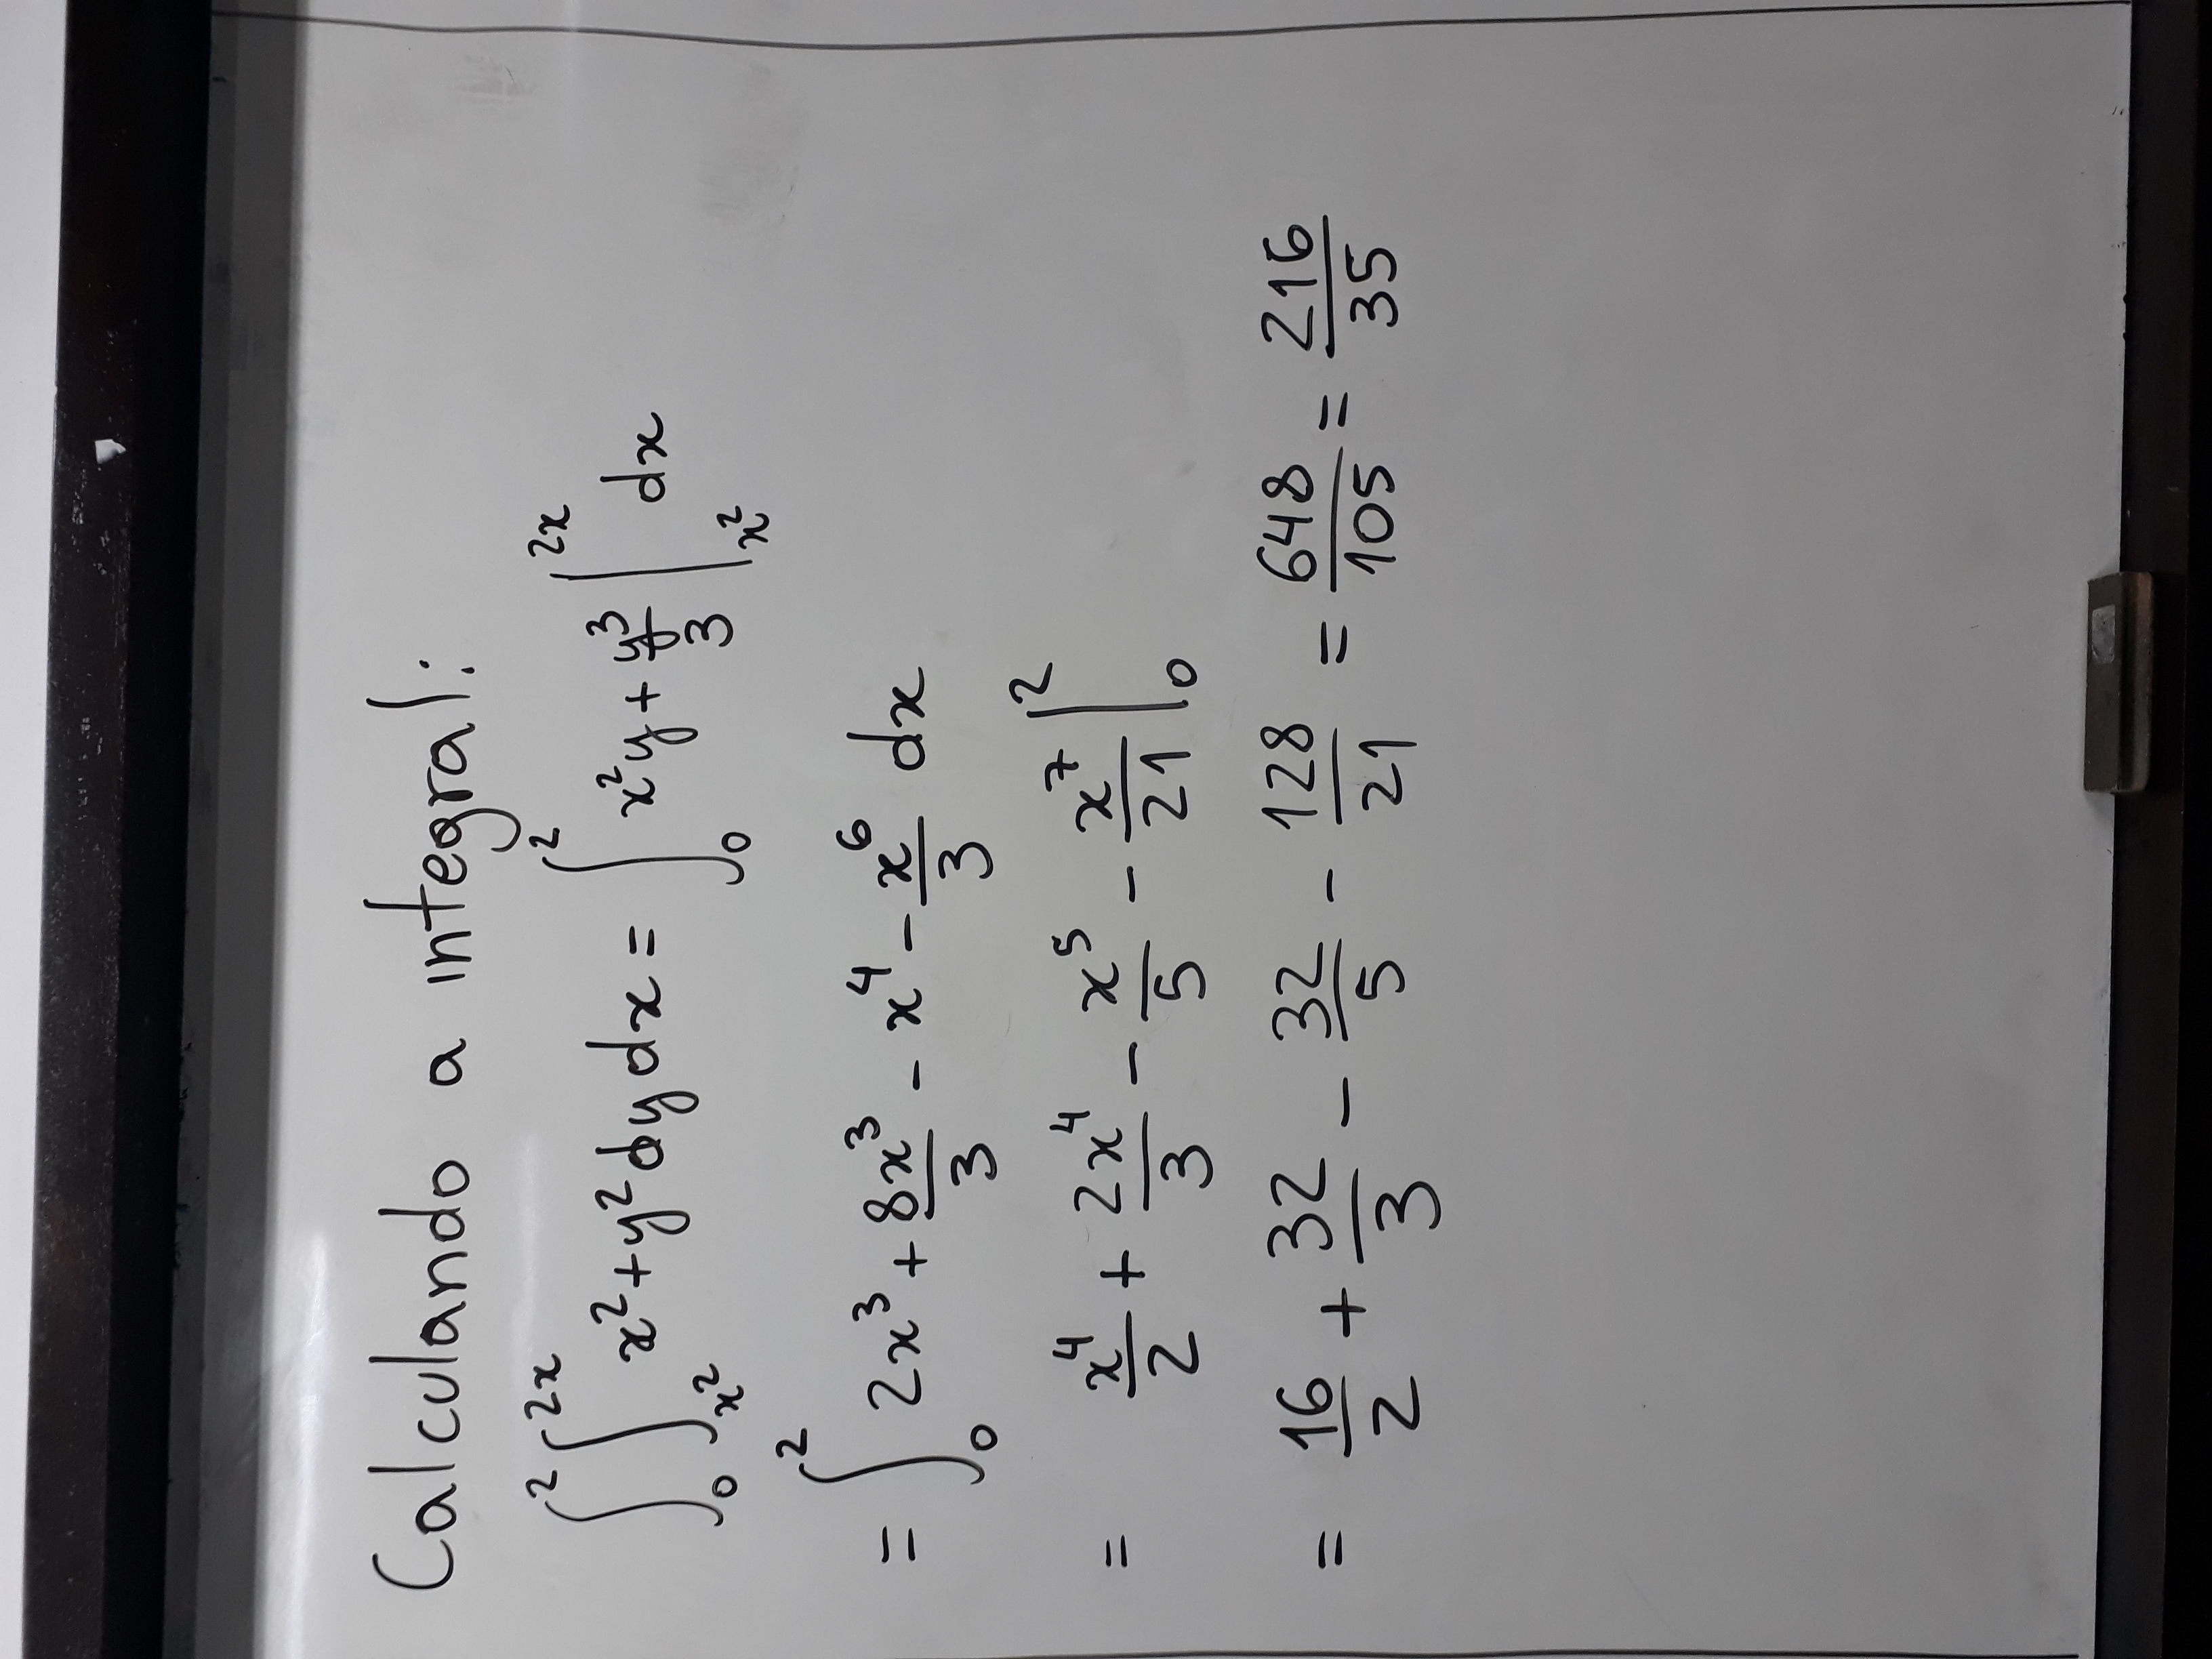 Calculando a integral:
∫₀² ∫_{x²}^{2x} x² + y² dy dx = ∫₀² x²y + y³/3 |_{x²}^{2x} dx
= ∫₀² 2x³ + 8x³/3 - x⁴ - x⁶/3 dx
= x⁴/2 + 2x⁴/3 - x⁵/5 - x⁷/21 |₀²
= 16/2 + 32/3 - 32/5 - 128/21 = 648/105 = 216/35